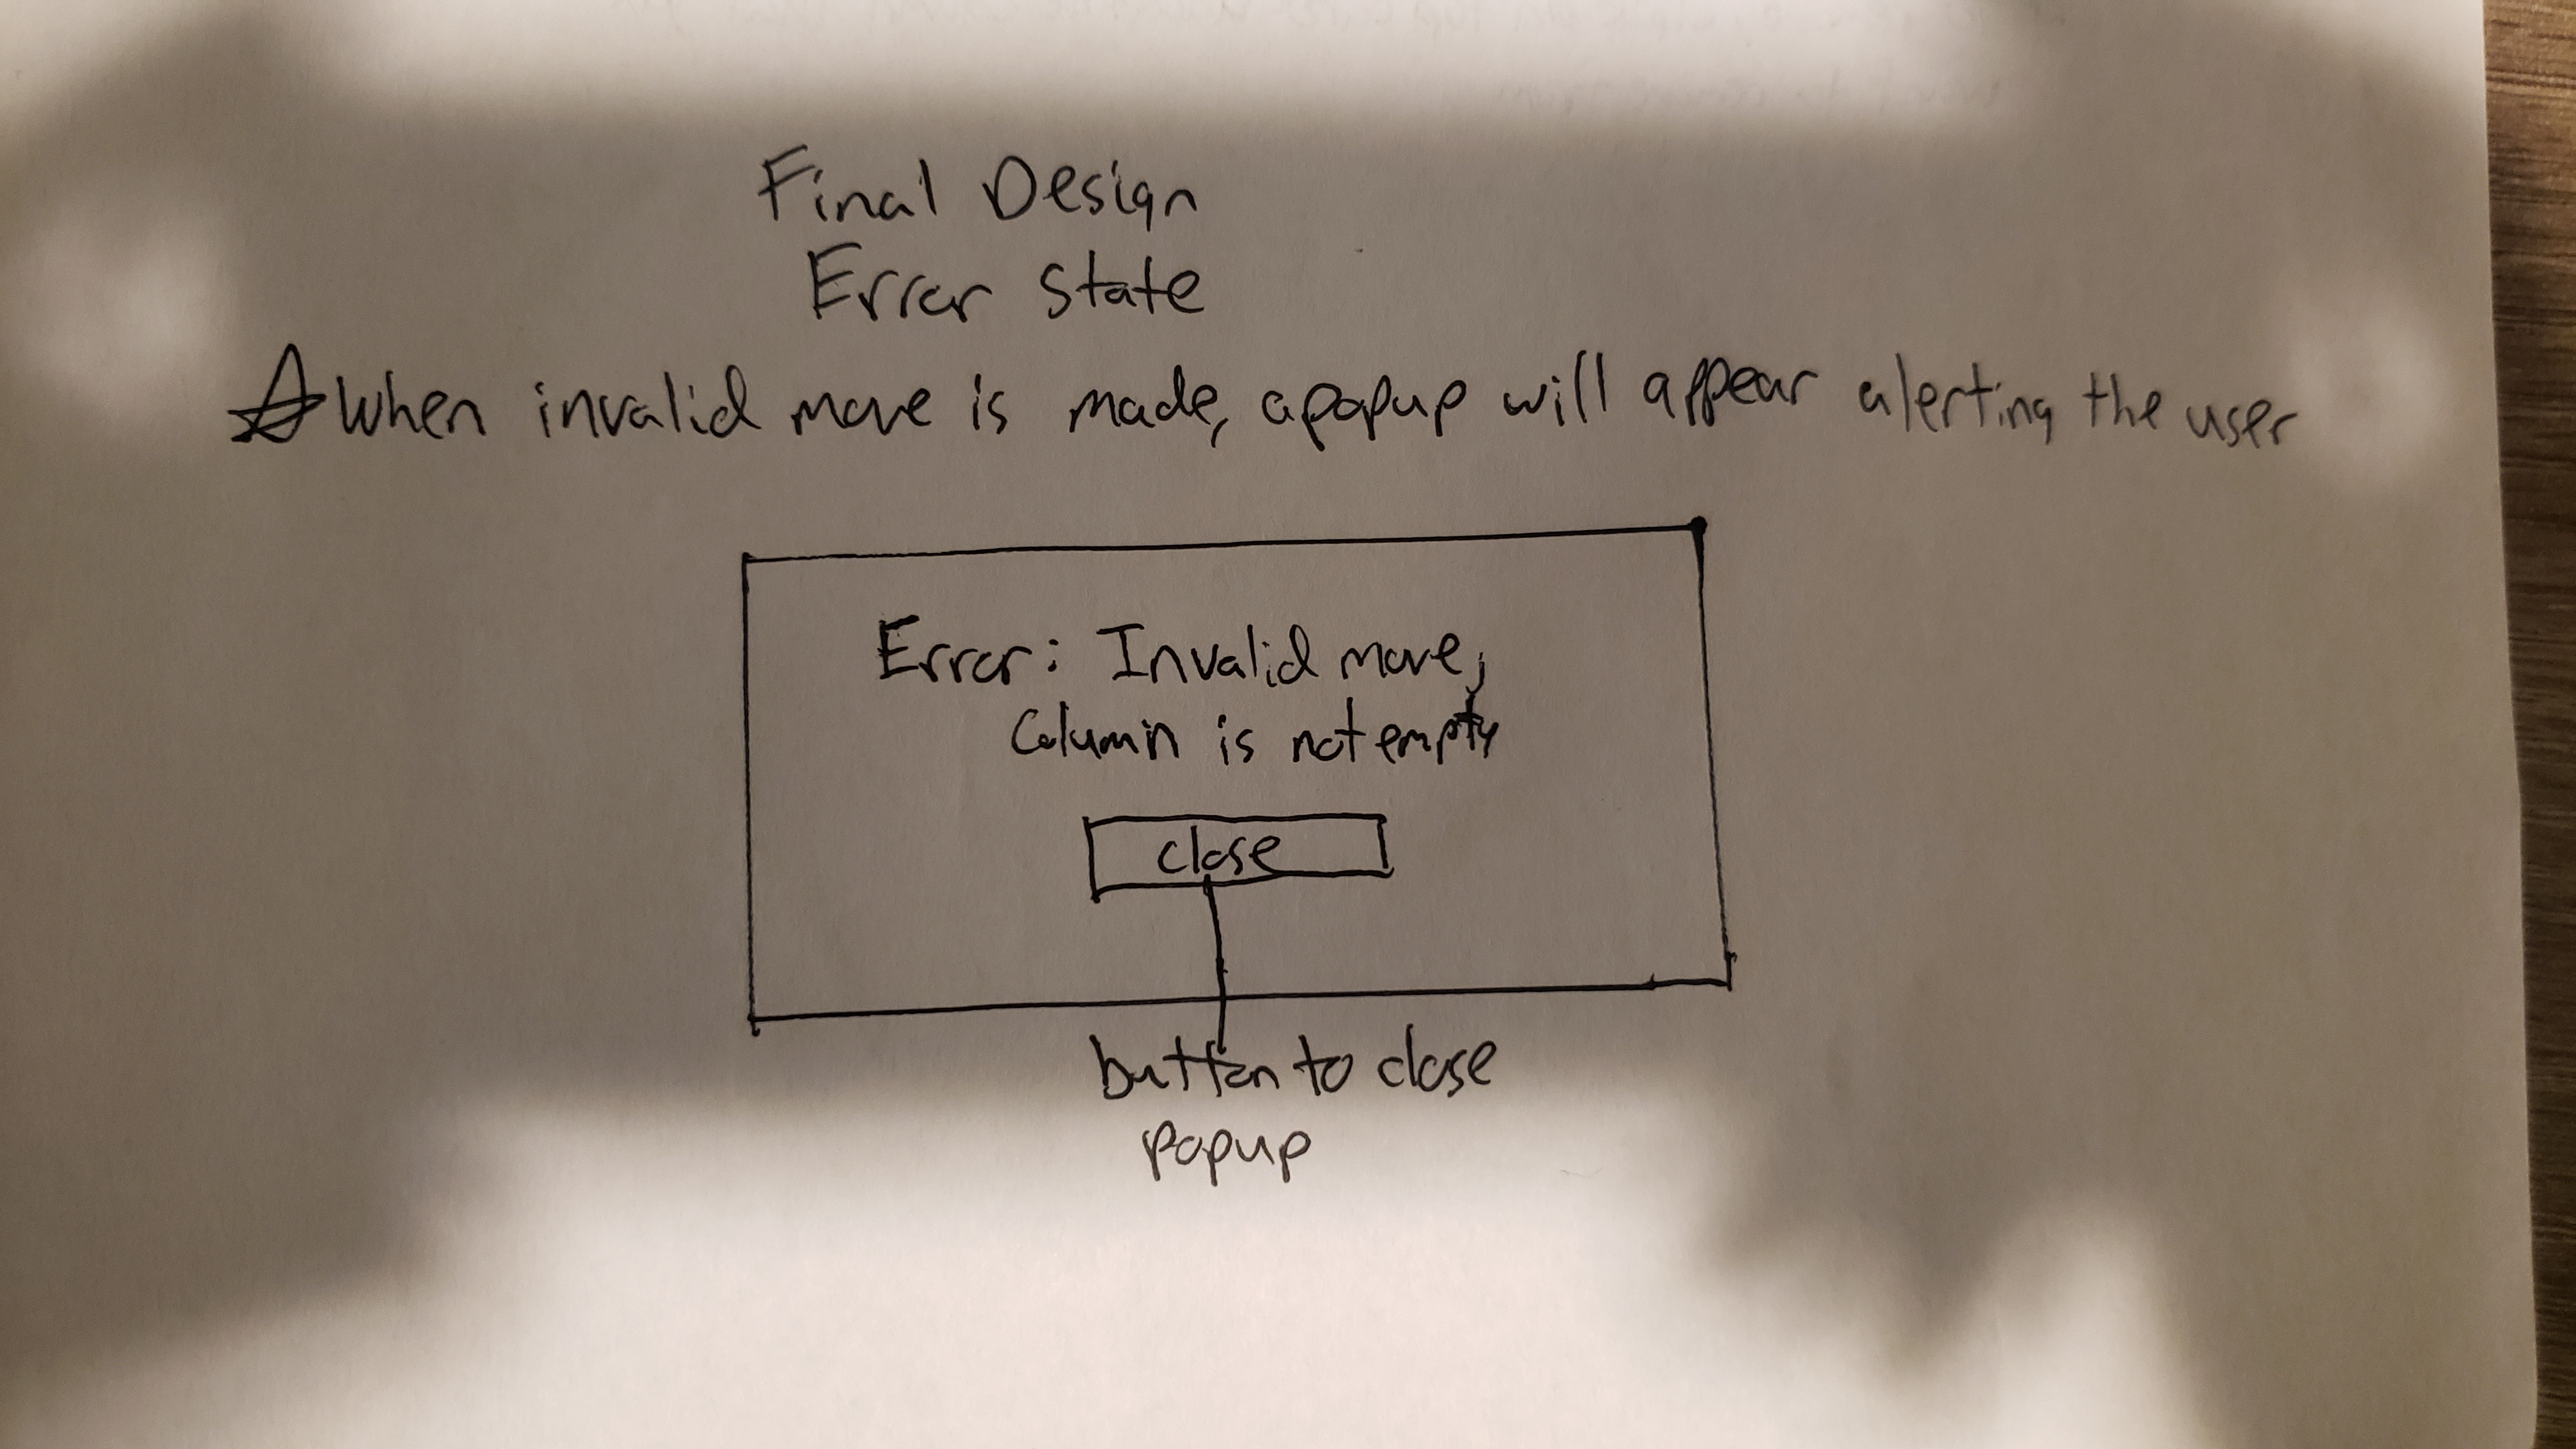 Final Design
Error State
☆ When invalid move is made, a popup will appear alerting the user
Error: Invalid move,
Column is not empty
close
button to close
popup